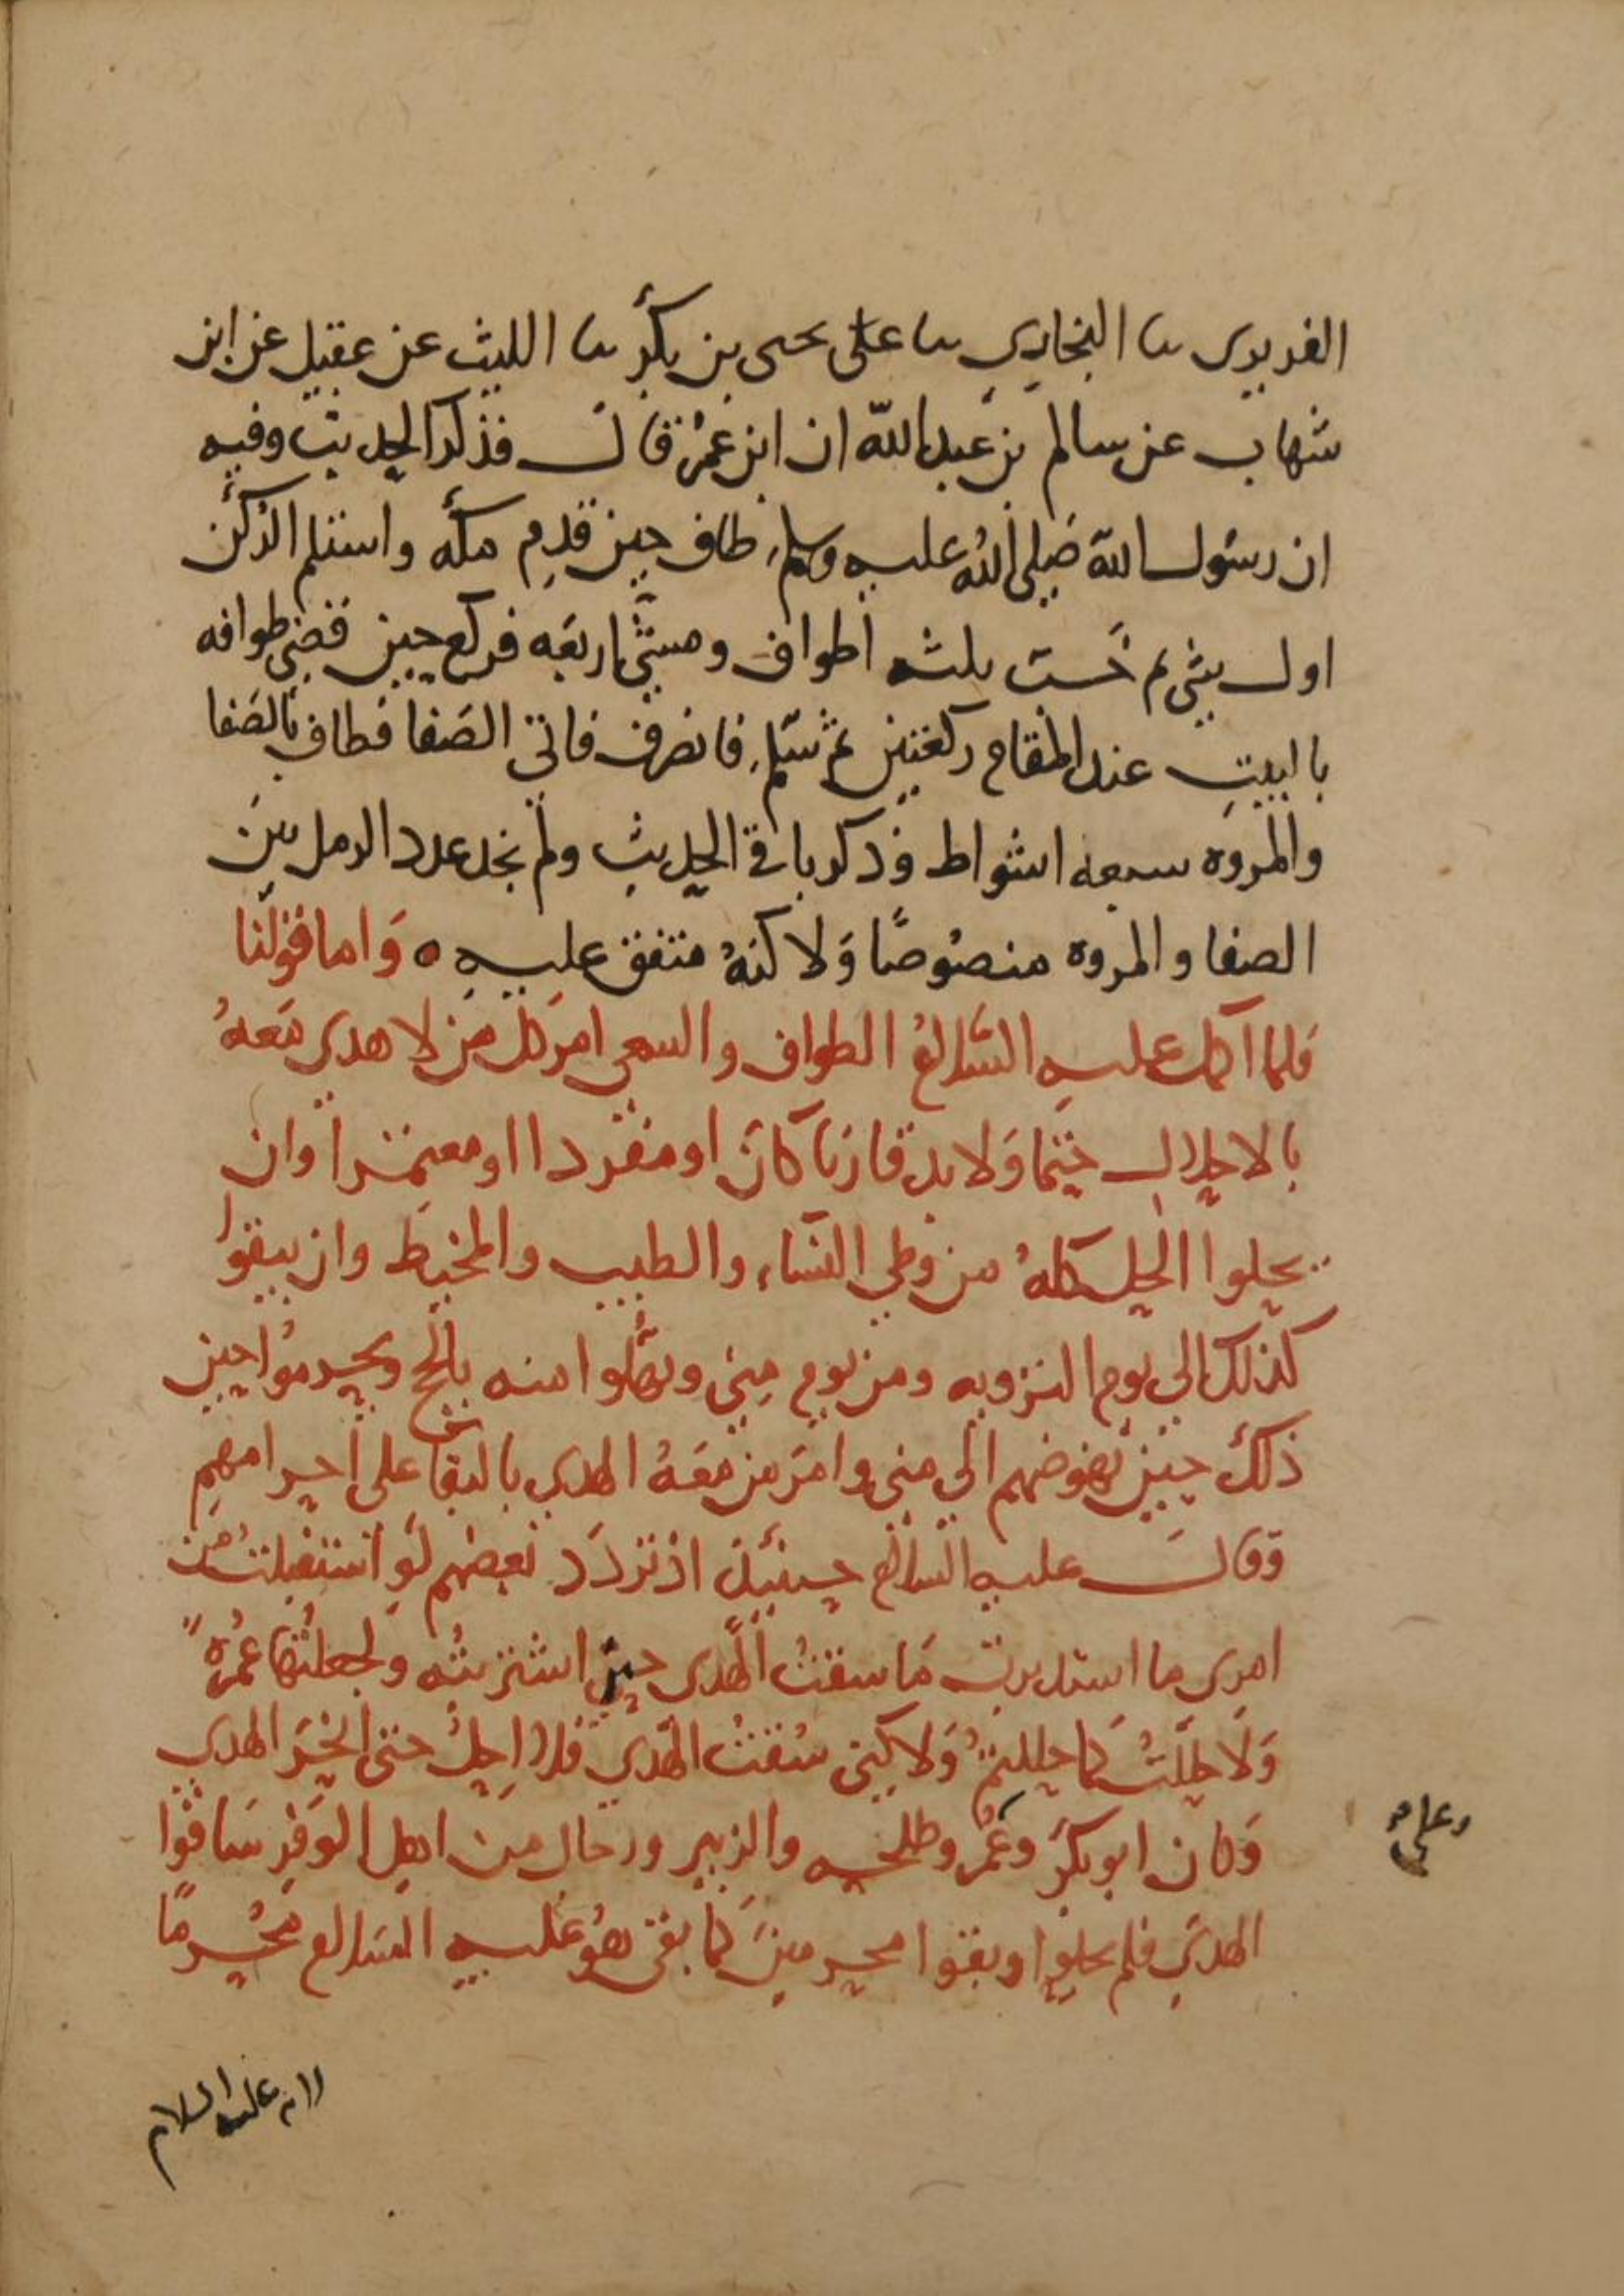 الفربرى ثنا البخاري ثنا يحيى بن بكر ثنا الليث عن عقيل عن ابن
شهاب عن سالم بن عبد الله ان ابن عمر قال فذكر الحديث وفيه
ان رسول الله صلى الله عليه وسلم طاف حين قدم مكه واستلم الركن
اول شي ثم خبّ ثلثه اطواف ومشى اربعه فركع حين قضى طوافه
بالبيت عند المقام ركعتين ثم سلم فانصرف فاتى الصفا فطاف بالصفا
والمروه سبعه اشواط وذكر باقي الحديث ولم نجد عدد الرمل بين
الصفا والمروه منصوصًا ولاكنه متفق عليه ه واما قولنا
فلما اكمل عليه السلام الطواف والسعي امر كل من لا هدي معه
بالاحلال حتما ولا بد قارنا كان او مفردا او معتمرا وان
يحلوا الحل كله من وطي النساء والطيب والمخيط وان يبقوا
كذلك الى يوم الترويه ومن يوم منى ويهلوا منه بالحج ويحرموا حين
ذلك حين نهوضهم الى منى وامر من معه الهدي بالبقا على احرامهم
وقال عليه السلام حينئذ اذ تردد بعضهم لو استقبلت من
امري ما استدبرت ما سقت الهدى حين اشتريته ولجعلتها عمرة
ولاحللت كما حللتم ولاكني سقت الهدي فلا احل حتى انحر الهدي
وكان ابو بكر وعمر وطلحه والزبير ورجال من اهل الوفر ساقوا
وعلى
الهدي فلم يحلوا وبقوا محرمين كما بقى هو عليه السلام محرمًا
عليه السلام